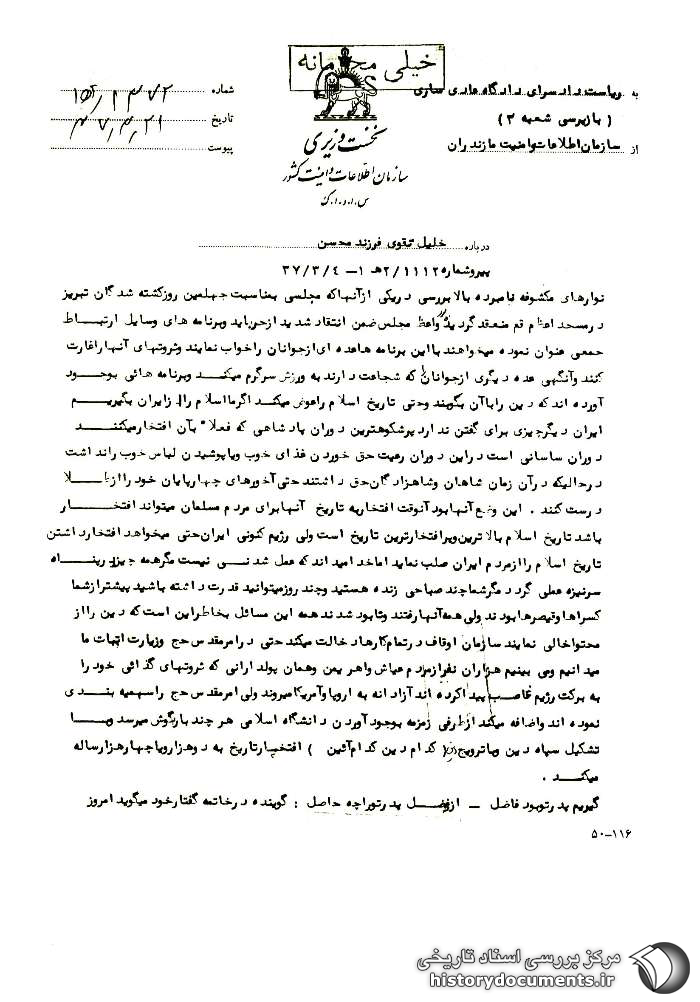 خیلی محرمانه
به ریاست دادسرای دادگاه عادی ساری
( بازپرسی شعبه ۲ )
از سازمان اطلاعات وامنیت مازندران
نخست وزیری
سازمان اطلاعات و امنیت کشور
س.ا.و.ا.ک
شماره
تاریخ ۳۷/۳/۲۱
پیوست
درباره خلیل تقوی فرزند محسن
پیروشماره ۲/۱۱۱۲هـ ۱ـ ۳۷/۳/۴
نوارهای مکشوفه نامبرده بالا بررسی دریکی ازآنهاکه مجلسی بمناسبت چهلمین روزکشته شدگان تبریز
درمسجد اعظم قم منعقد گردیده واعظ مجلس ضمن انتقاد شدید ازحزباید وبرنامه های وسایل ارتباط
جمعی عنوان نموده میخواهند بااین برنامه هاعده ای ازجوانان راخواب نمایند وثروتهای آنهاراغارت
کنند وآنگهی عده دیگری ازجوانان که شجاعت دارند به ورزش سرگرم میکنند وبرنامه هائی بوجود
آورده اند که دین راباآن بگویند وحتی تاریخ اسلام راعوض میکند اگرمااسلام را از ایران بگیریم
ایران دیگرچیزی برای گفتن ندارد پرشکوهترین دوران پادشاهی که فعلا" بآن افتخارمیکنند
دوران ساسانی است دراین دوران رعیت حق خوردن غذای خوب ویاپوشیدن لباس خوب رانداشت
درحالیکه درآن زمان شاهان وشاهزادگان حق داشتند حتی آخورهای چهارپایان خود راازطلا
درست کنند . این وضع آنهابود آنوقت افتخاربه تاریخ آنهابرای مردم مسلمان میتواند افتخار
باشد تاریخ اسلام بالاترین وپرافتخارترین تاریخ است ولی رژیم کنونی ایران حتی میخواهد افتخارداشتن
تاریخ اسلام راازمردم ایران صلب نماید اماخدا میداند که عمل شدنی نیست مگرهمه چیزدرپناه
سرنیزه عملی گردد مگرشماچند صباحی زنده هستید وچند روزمیتوانید قدرت داشته باشید پیشترازشما
کسراها وقیصرها بودند ولی همه آنهارفتند ونابود شدند همه این مسائل بخاطراین است که دین رااز
محتواخالی نمایند سازمان اوقاف درتمام کارهادخالت میکند حتی درامرمقدس حج وزیارت اتبات ما
میدانیم ومی بینیم هزاران نفرازمردم عیاش واهریمن وهمان پولدارانی که ثروتهای گدائی خود را
به برکت رژیم غاصب پیداکرده اند آزادانه به اروپاوآمریکامیروند ولی امرمقدس حج راسهمیه بندی
نموده اند واضافه میکند ازطرفی زمزمه بوجودآوردن دانشگاه اسلامی هرچند بارگوش میرسد ویا
تشکیل سپاه دین ویاترویج دین( کدام دین کدام آئین ) افتخاربتاریخ به دوهزارویاچهارهزارساله
میکند .
گیریم پدرتوبود فاضل ـ ازفضل پدرتوراچه حاصل : گوینده درخاتمه گفتارخود میگوید امروز
۵۰-۱۱۶
مرکز بررسی اسناد تاریخی
historydocuments.ir